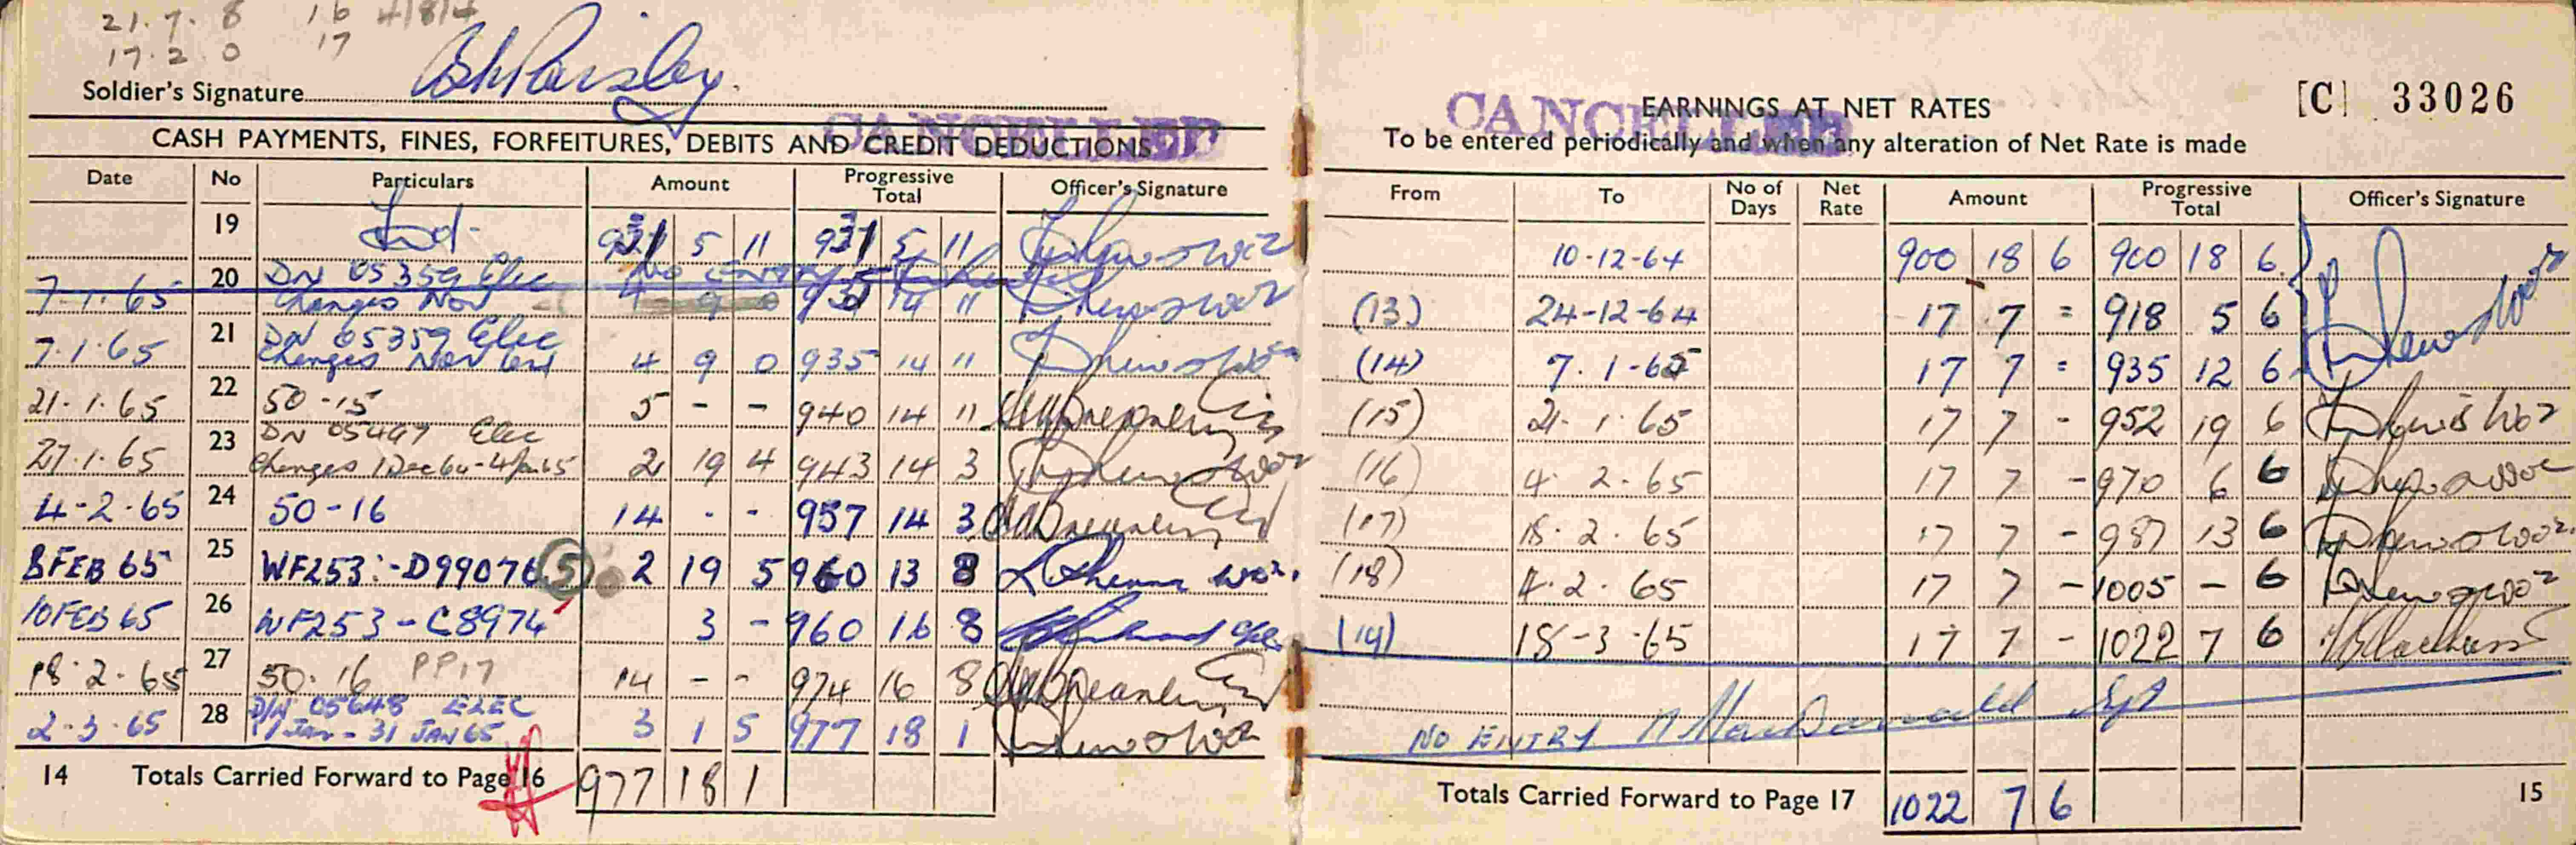 21.7.8 16 4/8/4
17.2.0 17
Soldier's Signature
CANCELLED
CASH PAYMENTS, FINES, FORFEITURES, DEBITS AND CREDIT DEDUCTIONS
Date No Particulars Amount Progressive Total Officer's Signature
19 Fwd. 931 5 11 931 5 11
7.1.65 20 DN 05359 Elec No Entry
Charges Nov 4 9 0 935 14 11
7.1.65 21 DN 05359 Elec
Charges Nov 4 9 0 935 14 11
21.1.65 22 50-15 5 - - 940 14 11
27.1.65 23 DN 05447 Elec
Charges 1 Dec 64-4 Jan 65 2 19 4 943 14 3
4-2-65 24 50-16 14 - - 957 14 3
8 FEB 65 25 WF253:-D99076 5 2 19 5 960 13 8
10 FEB 65 26 WF253-C8974 3 - 960 16 8
18.2.65 27 50.16 PP17 14 - - 974 16 8
2-3-65 28 D/N 05648 ELEC
JAN-31 JAN 65 3 1 5 977 18 1
14 Totals Carried Forward to Page 16 977 18 1
CANCELLED
EARNINGS AT NET RATES [C] 33026
To be entered periodically and when any alteration of Net Rate is made
From To No of Days Net Rate Amount Progressive Total Officer's Signature
10-12-64 900 18 6 900 18 6
(13) 24-12-64 17 7 = 918 5 6
(14) 7.1-65 17 7 = 935 12 6
(15) 21.1.65 17 7 - 952 19 6
(16) 4.2.65 17 7 - 970 6 6
(17) 18.2.65 17 7 - 987 13 6
(18) 4.2.65 17 7 - 1005 - 6
(19) 18-3-65 17 7 - 1022 7 6
NO ENTRY MacDonald Sgt
Totals Carried Forward to Page 17 1022 7 6 15